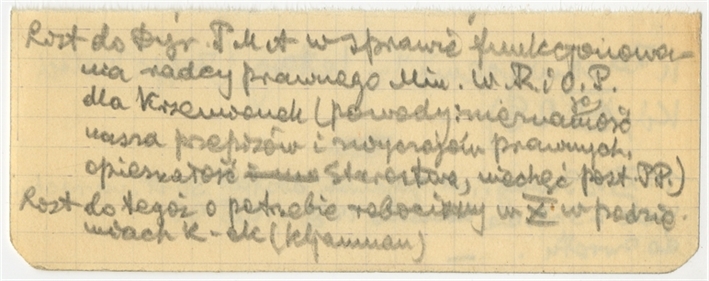 List do Dyr. P M A w sprawie funkcjonowa-
nia radcy prawnego Min. W. R i O. P.
dla Krzemionek (powody: nieznajomość
nasza przepisów i zwyczajów prawnych,
opieszałość Starostwa, niechęć post. PP.)
List do tegoż o potrzebie robocizny w X. w podzie-
miach K-ek (